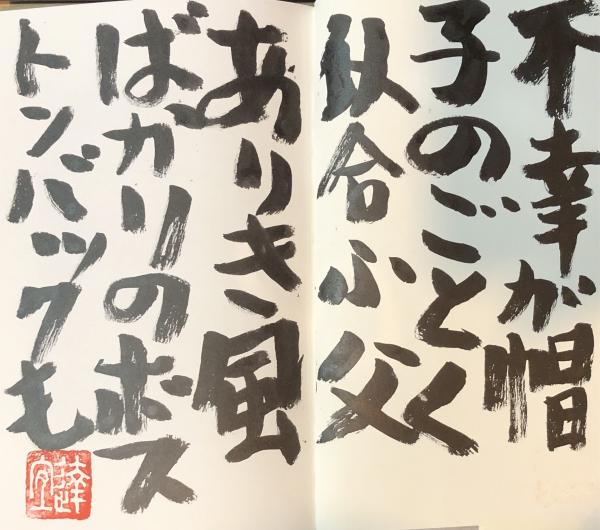 不幸が帽
子のごとく
似合ふ父
ありき風
ばかりのボス
トンバックも